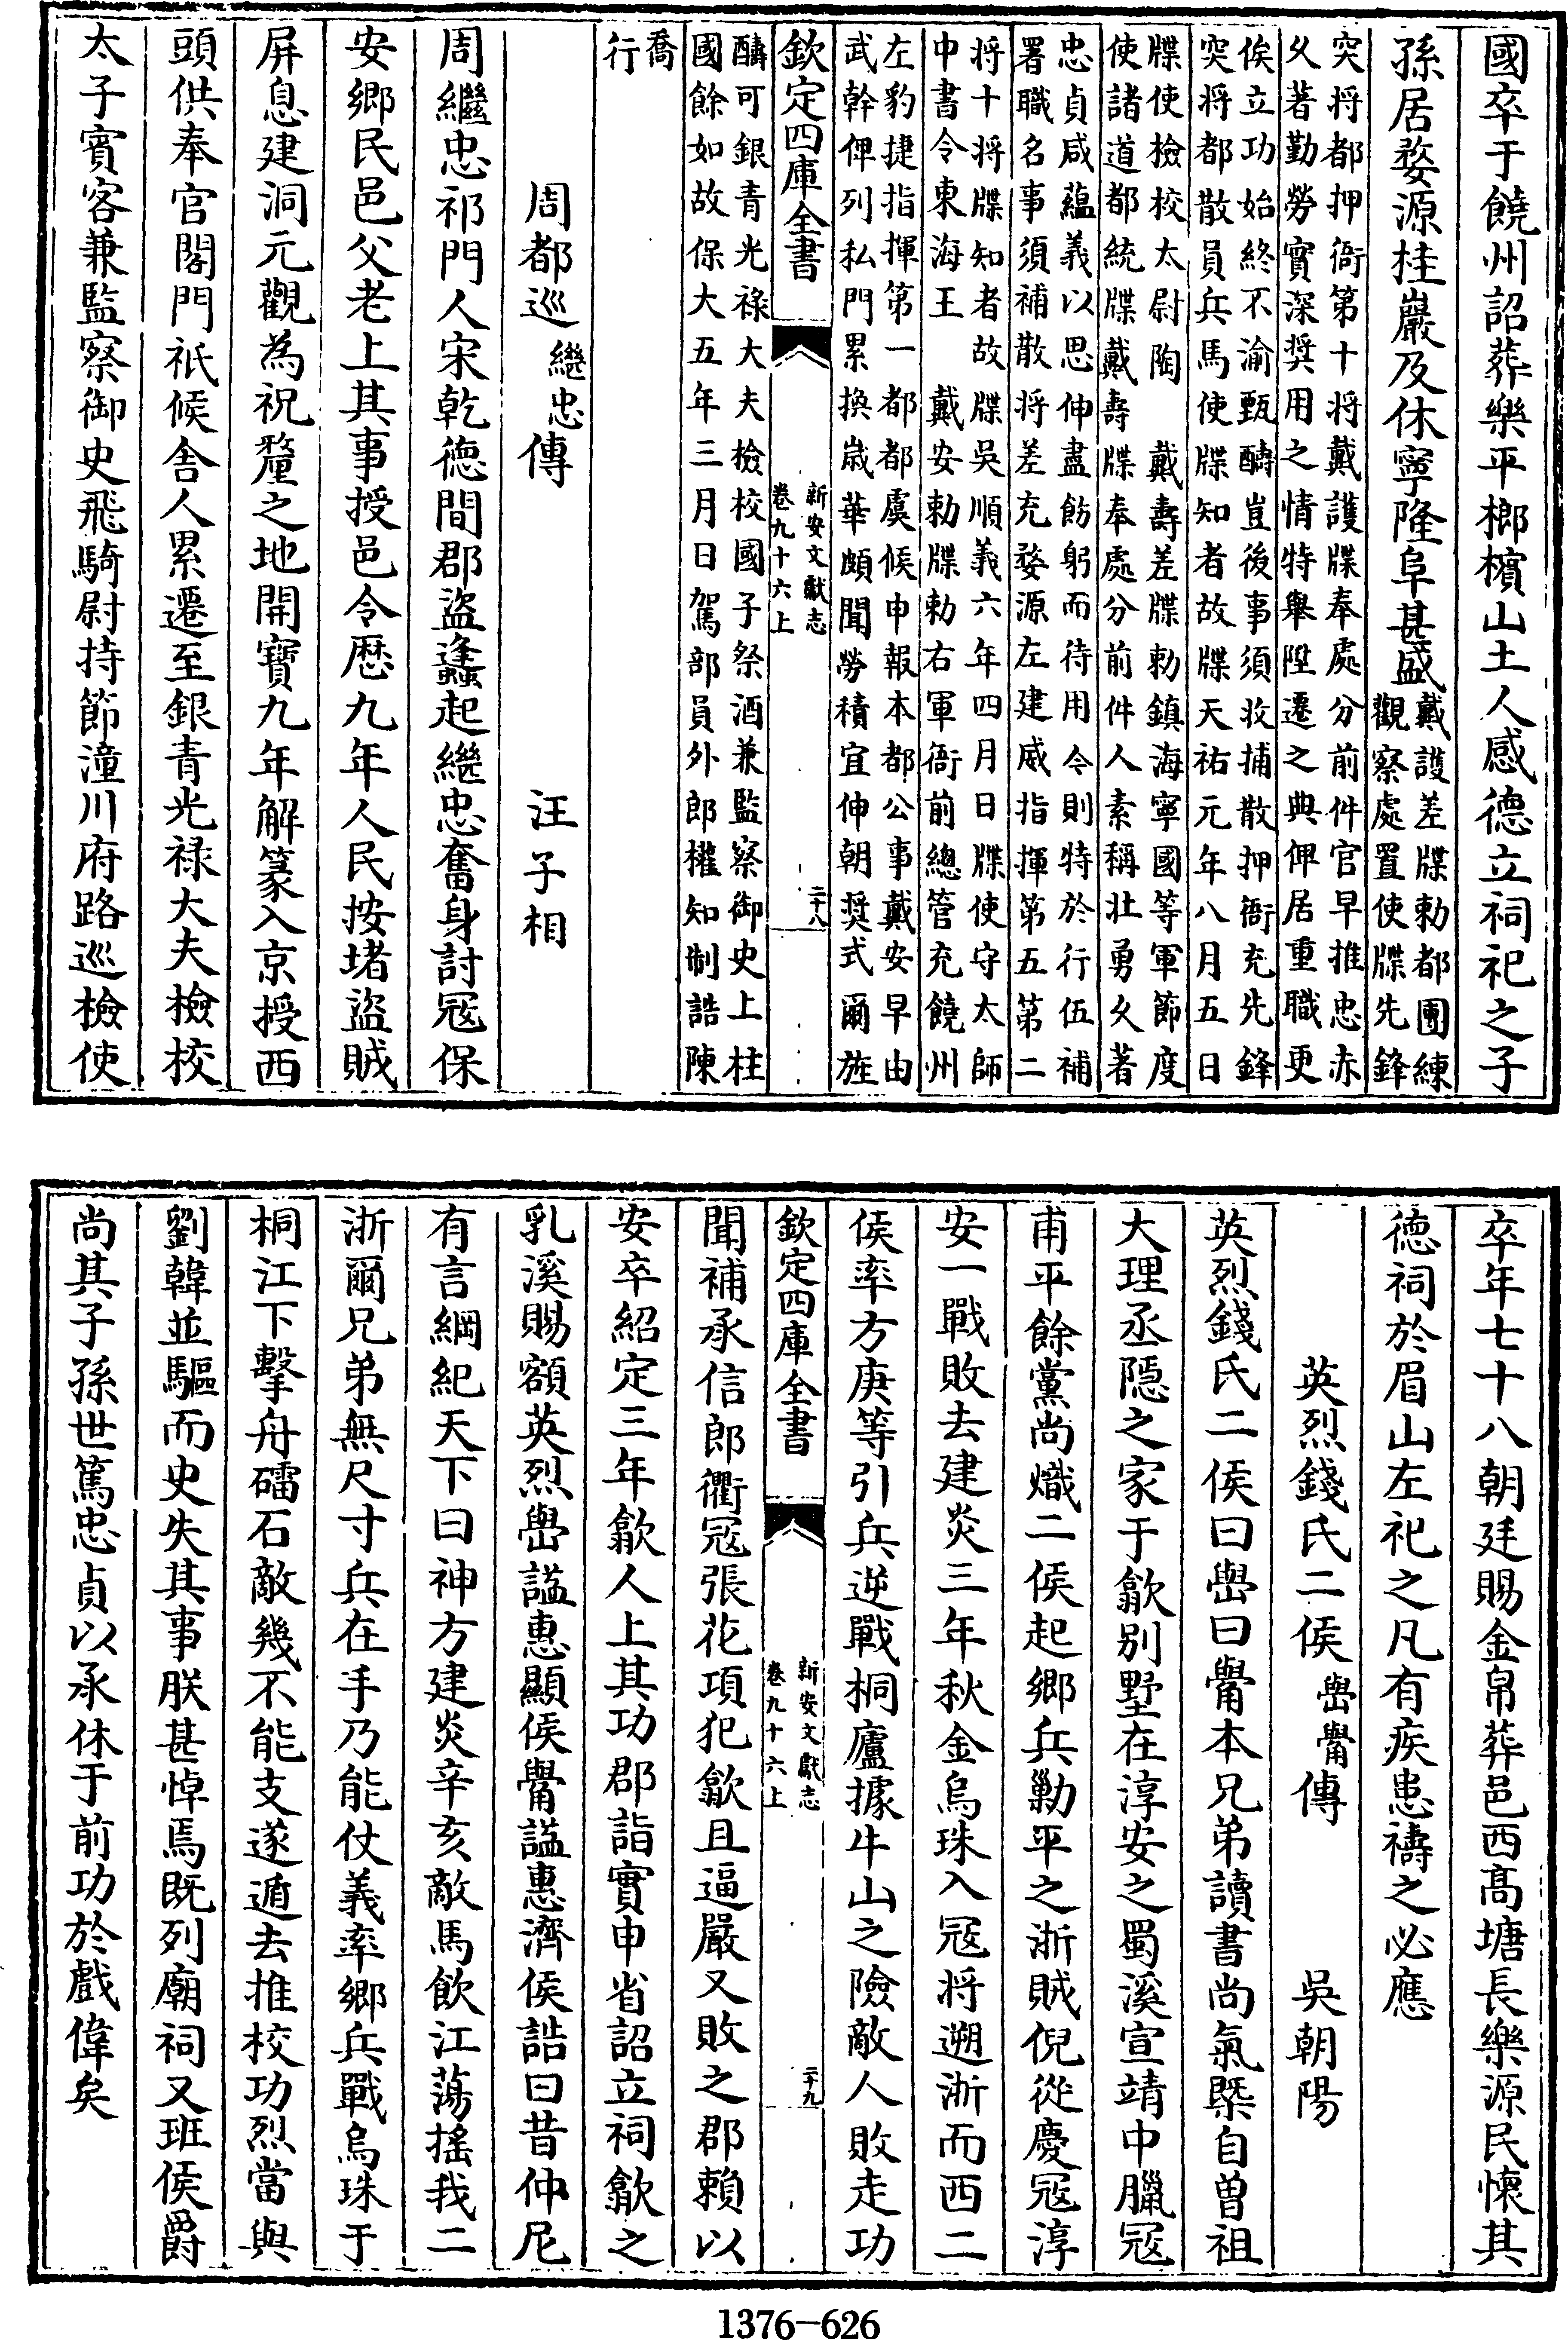 國卒于饒州詔葬樂平榔檳山土人感德立祠祀之子
孫居婺源桂巖及休寧隆阜甚盛戴護差牒勅都團練
觀察處置使牒先鋒
突将都押衙第十将戴護牒奉處分前件官早推忠赤
久著勤勞實深奨用之情特舉陞遷之典俾居重職更
俟立功始終不渝甄酬豈後事須收捕散押衙充先鋒
突将都散員兵馬使牒知者故牒天祐元年八月五日
牒使檢校太尉陶　戴壽差牒勅鎮海寧國等軍節度
使諸道都統牒戴壽牒奉處分前件人素稱壯勇久著
忠貞咸蘊義以思伸盡飭躬而待用令則特於行伍補
署職名事須補散将差充婺源左建威指揮第五第二
将十将牒知者故牒吳順義六年四月日牒使守太師
中書令東海王　戴安勅牒勅右軍衙前總管充饒州
左豹捷指揮第一都都虞候申報本都公事戴安早由
武幹俾列私門累換歳華頗聞勞積宜伸朝奨式爾旌
欽定四庫全書
新安文獻志
卷九十六上
二十八
酬可銀青光祿大夫檢校國子祭酒兼監察御史上柱
國餘如故保大五年三月日駕部員外郎權知制誥陳
喬
行
周都巡繼忠傳　汪子相
周繼忠祁門人宋乾德間郡盜蠭起繼忠奮身討冦保
安鄉民邑父老上其事授邑令歴九年人民按堵盜賊
屏息建洞元觀為祝釐之地開寶九年解篆入京授西
頭供奉官閣門祇候舎人累遷至銀青光禄大夫檢校
太子賓客兼監察御史飛騎尉持節潼川府路巡檢使
卒年七十八朝廷賜金帛葬邑西高塘長樂源民懷其
德祠於眉山左祀之凡有疾患禱之必應
英烈錢氏二侯㟧觷傳　吳朝陽
英烈錢氏二侯曰㟧曰觷本兄弟讀書尚氣槩自曽祖
大理丞隠之家于歙别墅在淳安之蜀溪宣靖中臘冦
甫平餘黨尚熾二侯起鄉兵勦平之浙賊倪從慶冦淳
安一戰敗去建炎三年秋金烏珠入冦将遡浙而西二
侯率方庚等引兵逆戰桐廬據牛山之險敵人敗走功
欽定四庫全書
新安文獻志
卷九十六上
二十九
聞補承信郎衢冦張花項犯歙且逼嚴又敗之郡賴以
安卒紹定三年歙人上其功郡詣實申省詔立祠歙之
乳溪賜額英烈㟧諡惠顯侯觷諡惠濟侯誥曰昔仲尼
有言綱紀天下曰神方建炎辛亥敵馬飲江蕩揺我二
浙爾兄弟無尺寸兵在手乃能仗義率鄉兵戰烏珠于
桐江下擊舟礌石敵幾不能支遂遁去推校功烈當與
劉韓並驅而史失其事朕甚悼焉既列廟祠又班侯爵
尚其子孫世篤忠貞以承休于前功於戲偉矣
1376-626